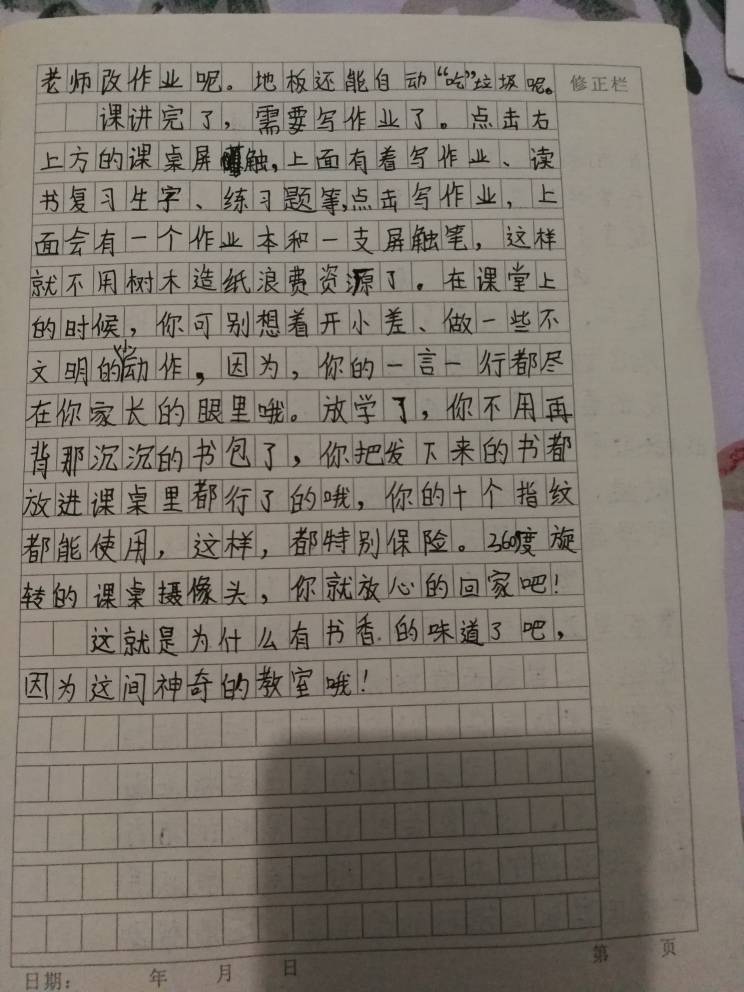 老师改作业呢。地板还能自动“吃”垃圾呢。
修正栏
课讲完了，需要写作业了。点击右
上方的课桌屏触，上面有着写作业、读
书复习生字、练习题等，点击写作业，上
面会有一个作业本和一支屏触笔，这样
就不用树木造纸浪费资源了。在课堂上
的时候，你可别想着开小差、做一些不
文明的小动作，因为，你的一言一行都尽
在你家长的眼里哦。放学了，你不用再
背那沉沉的书包了，你把发下来的书都
放进课桌里都行了的哦，你的十个指纹
都能使用，这样，都特别保险。360度旋
转的课桌摄像头，你就放心的回家吧！
这就是为什么有书香的味道了吧，
因为这间神奇的教室哦！
日期： 年 月 日
第 页